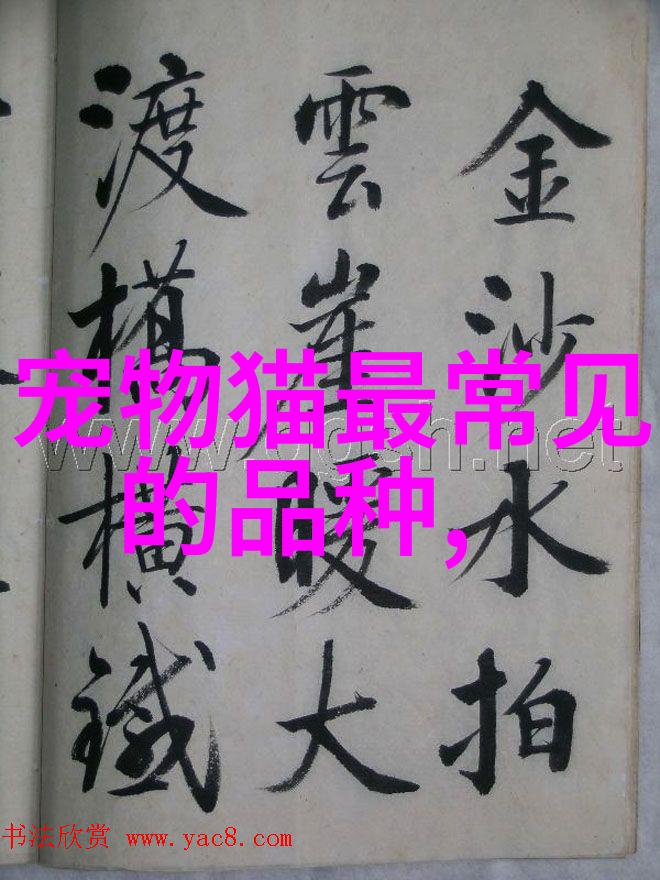 金沙水拍
雲崖暖大
渡橋橫鐵
宠物猫最常见
的品种,
书法欣赏 www.yac8.com